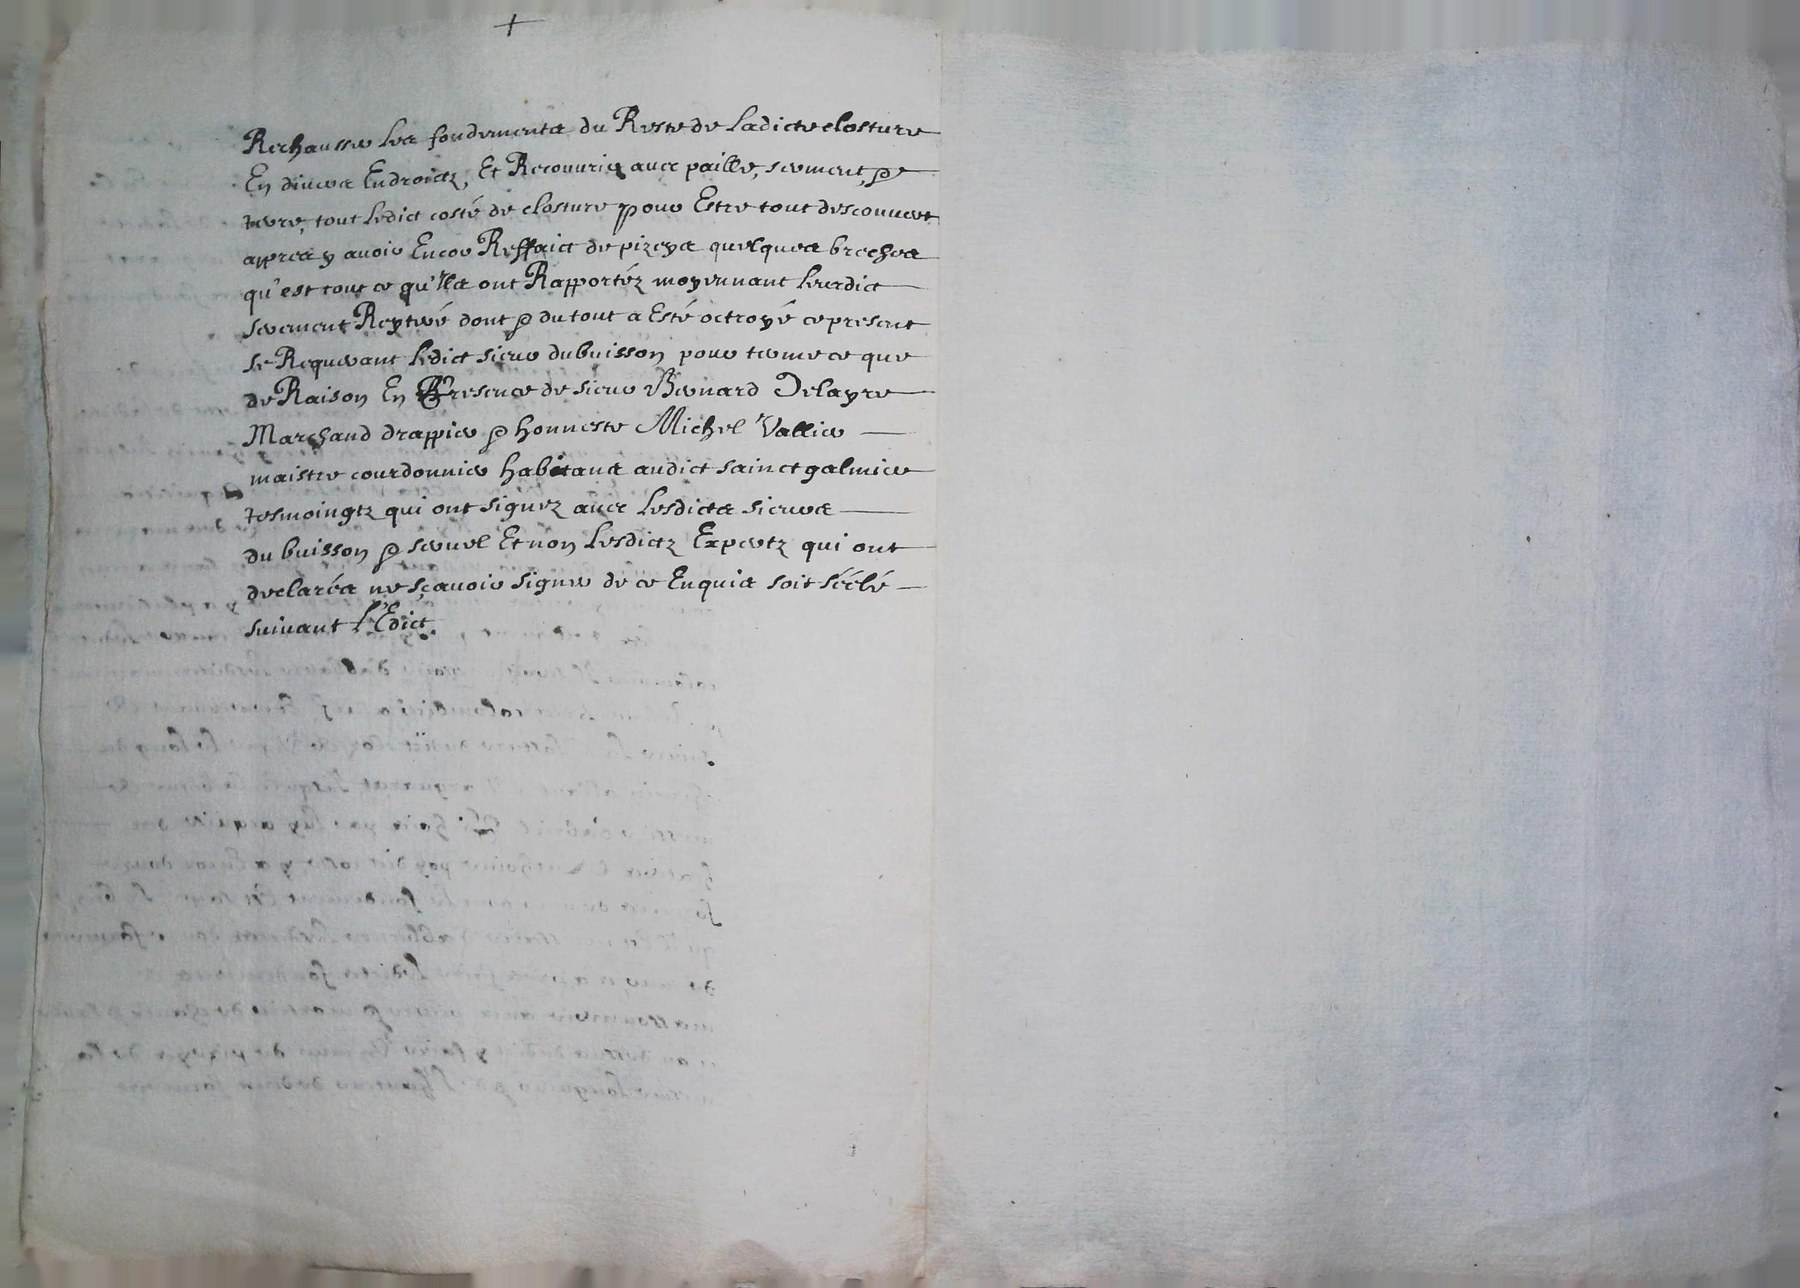 Rechausser les fondements du Reste de Ladicte closture
En divers Endroictz, Et Recouvrir avec paille, serment, &
terre, tout Ledict costé de closture pour Estre tout descouvert
apres y avoir Encor Reffaict de pizeys quelques breches
qu'est tout ce qu'Ils ont Rapportéz moyennant Leurdict
serment Reyteré dont & du tout a Esté octroyé ce present
Le Requerant Ledict sieur dubuisson pour servir ce que
de Raison En Presence de sieur Bernard Delayre
Marchand drappier & honneste Michel Vallier
maistre courdonnier habitans audict sainct galmier
tesmoingtz qui ont signez avec Lesdicts sieurs
du buisson & Et non Lesdictz Expertz qui ont
declarés ne sçavoir signer de ce Enquis soit séélé
suivant L'Edict.